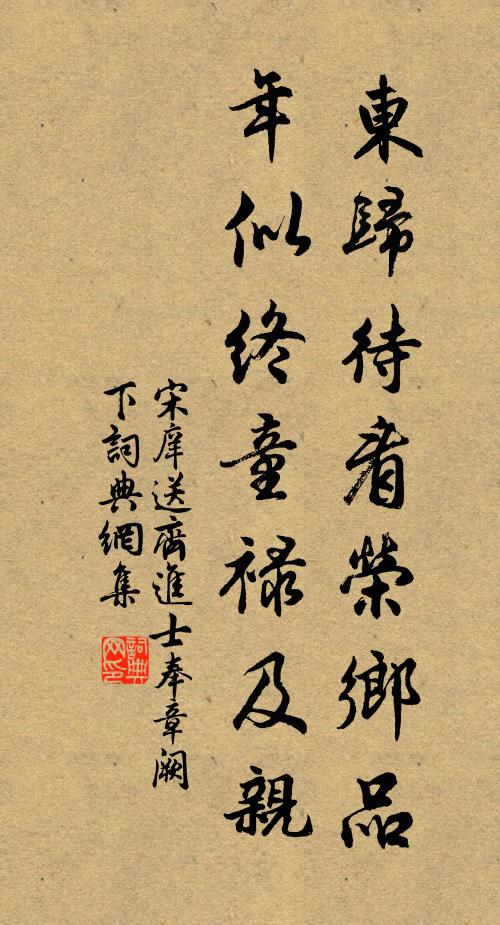 東歸待看榮鄉品
年似終童祿及親
宋庠送齊進士奉章闕
下詞典網集
詞典
网印